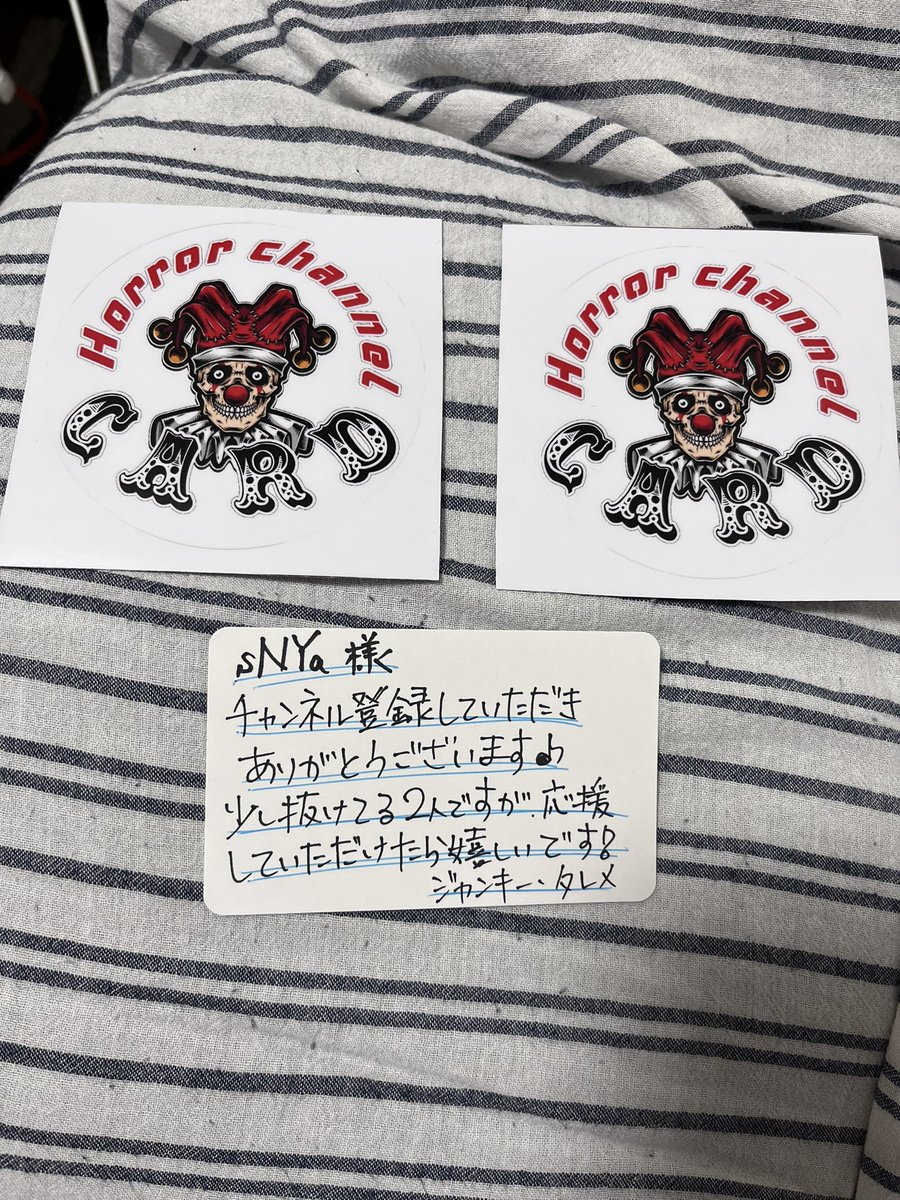 Horror channel
CARD
Horror channel
CARD
sNYa 様
チャンネル登録していただき
ありがとうございます♪
少し抜けてる2人ですが、応援
していただけたら嬉しいです!
ジャンキー・タレメ